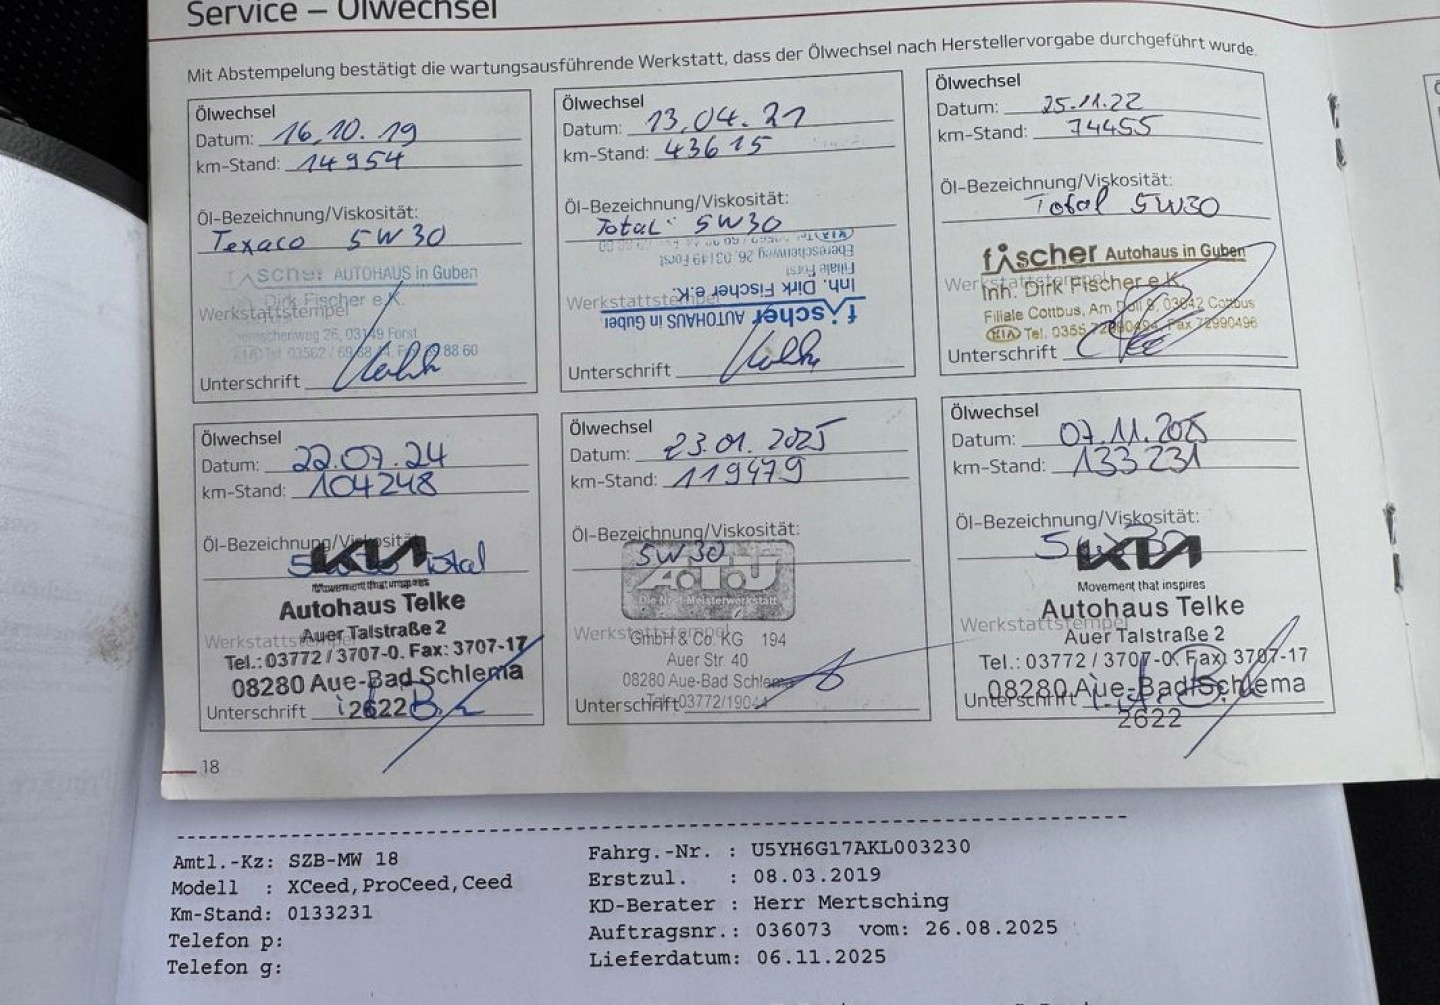 Service – Ölwechsel
Mit Abstempelung bestätigt die wartungsausführende Werkstatt, dass der Ölwechsel nach Herstellervorgabe durchgeführt wurde.
Ölwechsel
Datum: 16.10.19
km-Stand: 14954
Öl-Bezeichnung/Viskosität:
Texaco 5W30
fischer AUTOHAUS in Guben
Dirk Fischer e.K.
Werkstattstempel
26, 03149 Forst
KIA Tel. 03562 /
88 60
Unterschrift
Ölwechsel
Datum: 13.04.21
km-Stand: 43615
Öl-Bezeichnung/Viskosität:
Total 5W30
KIA Tel.
Ebereschenweg 26, 03149 Forst
Filiale Forst
Inh. Dirk Fischer e.K.
Werkstattstempel
fischer AUTOHAUS in Guben
Unterschrift
Ölwechsel
Datum: 25.11.22
km-Stand: 74455
Öl-Bezeichnung/Viskosität:
Total 5W30
fischer Autohaus in Guben
Werkstattstempel
Inh. Dirk Fischer e.K.
Filiale Cottbus, Am 03042 Cottbus
KIA Tel. 0355 Fax 72990496
Unterschrift
Ölwechsel
Datum: 22.07.24
km-Stand: 104248
Öl-Bezeichnung/Viskosität:
KIA
Total
Movement that inspires
Autohaus Telke
Werkstattstempel
Auer Talstraße 2
Tel.: 03772 / 3707-0. Fax: 3707-17
08280 Aue-Bad Schlema
Unterschrift
2622
Ölwechsel
Datum: 23.01.2025
km-Stand: 119479
Öl-Bezeichnung/Viskosität:
5W30
A.T.U
Die Nr. 1 Meisterwerkstatt
Werkstattstempel
GmbH & Co. KG 194
Auer Str. 40
08280 Aue-Bad Schlema
Unterschrift
03772/190
Ölwechsel
Datum: 07.11.2025
km-Stand: 133231
Öl-Bezeichnung/Viskosität:
KIA
Movement that inspires
Autohaus Telke
Werkstattstempel
Auer Talstraße 2
Tel.: 03772 / 3707-0. Fax: 3707-17
08280 Aue-Bad Schlema
Unterschrift
2622
18
Amtl.-Kz: SZB-MW 18
Modell : XCeed,ProCeed,Ceed
Km-Stand: 0133231
Telefon p:
Telefon g:
Fahrg.-Nr. : U5YH6G17AKL003230
Erstzul. : 08.03.2019
KD-Berater : Herr Mertsching
Auftragsnr.: 036073 vom: 26.08.2025
Lieferdatum: 06.11.2025